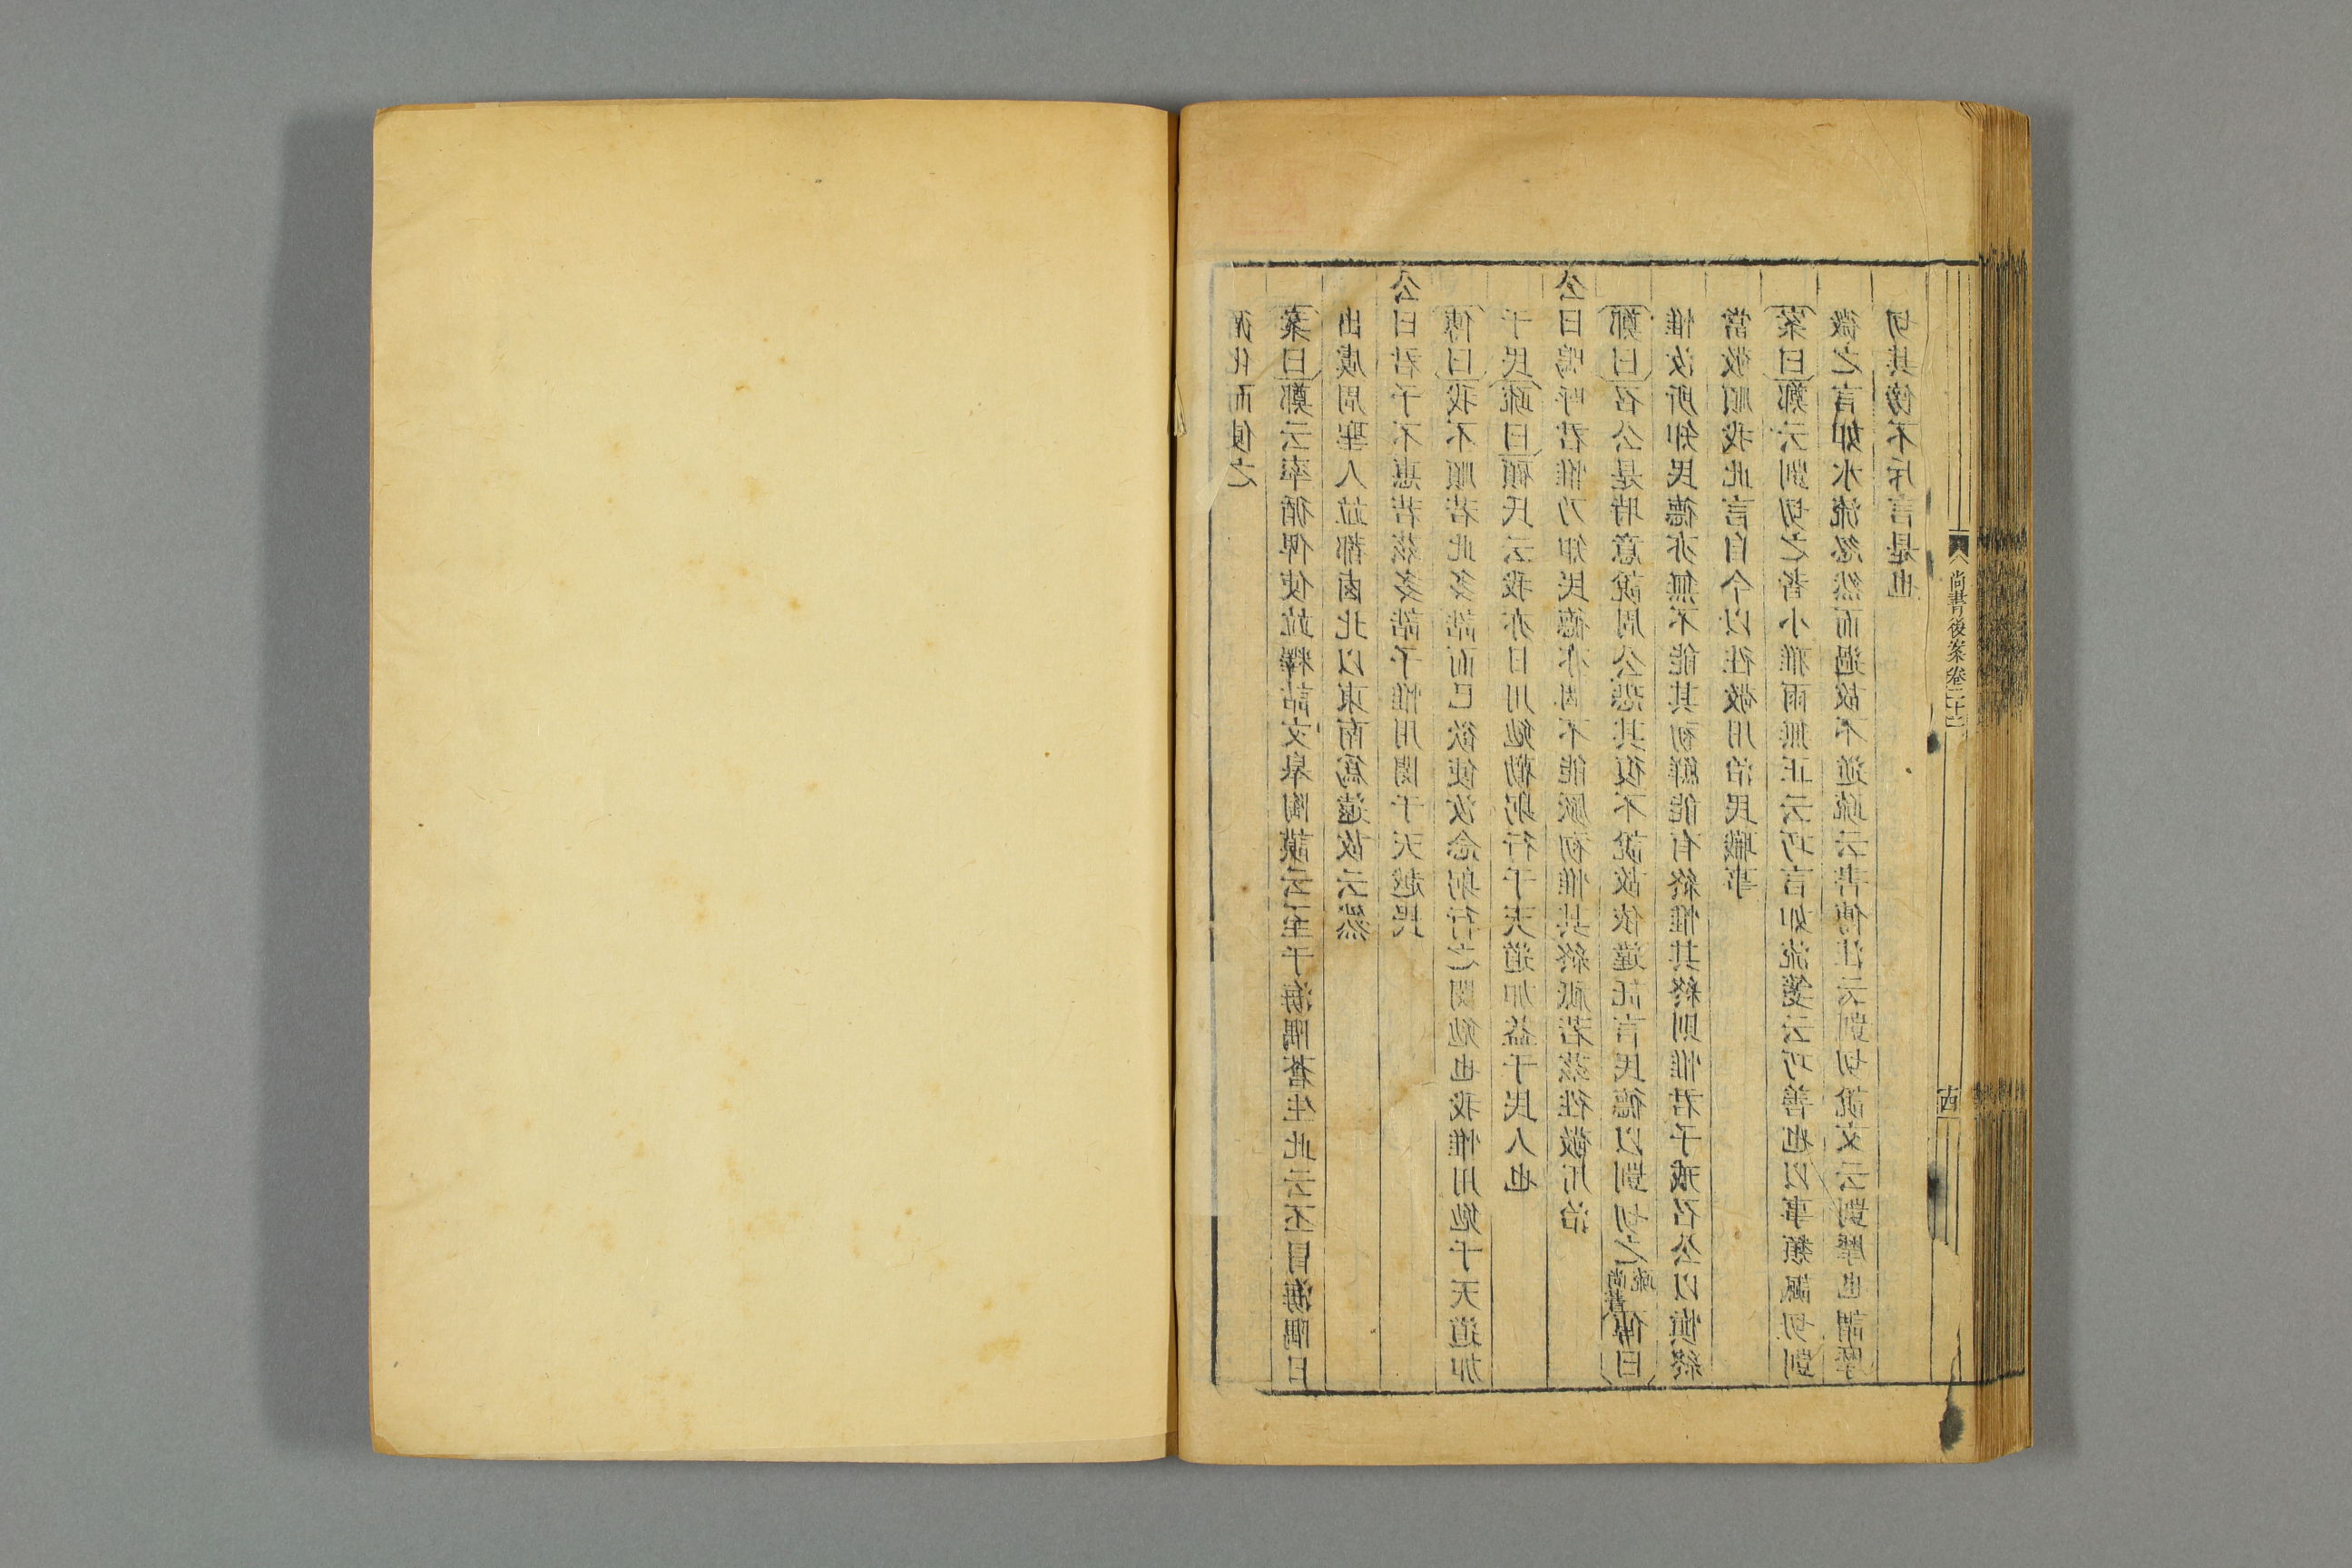 循化而使之
案曰鄭云率循俾使竝釋詁文皋陶謨云至于海隅蒼生此云丕冒海隅日
出處周聖人竝都鹵北以東南爲遠故云然
公曰君予不惠若茲多誥予惟用閔于天越民
傳曰我不順若此多誥而已欲使汝念躬行之閔勉也我惟用勉于天道加
于民疏曰顧氏云我亦曰用勉勸躬行于天道加益于民人也
公曰嗚呼君惟乃知民德亦罔不能厥初惟其終祗若茲往敬用治
鄭曰召公是時意說周公恐其復不說故依違託言民德以剴切之尚書疏傳曰
惟汝所知民德亦無不能其初鮮能有終惟其終則惟君子戒召公以慎終
當敬順我此言自今以往敬用治民職事
案曰鄭云剴切之者小雅雨無正云巧言如流箋云巧善也以事類諷切剴
微之言如水流忽然而過故不逆疏云書傳注云剴切說文云剴摩也謂摩
切其傍不斥言是也
尚書後案卷二十二
十四